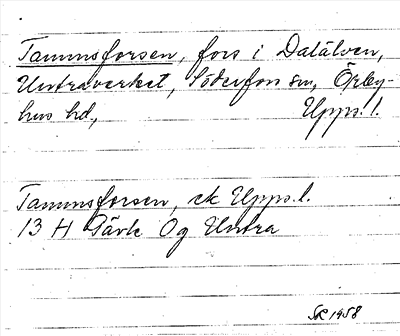 Tammsforsen, fors i Dalälven,
Untraverket, Söderfors sn, Örby-
hus hd, Upps. l.
Tammsforsen, ek Upps. l.
13 H Gävle Og Untra
1958